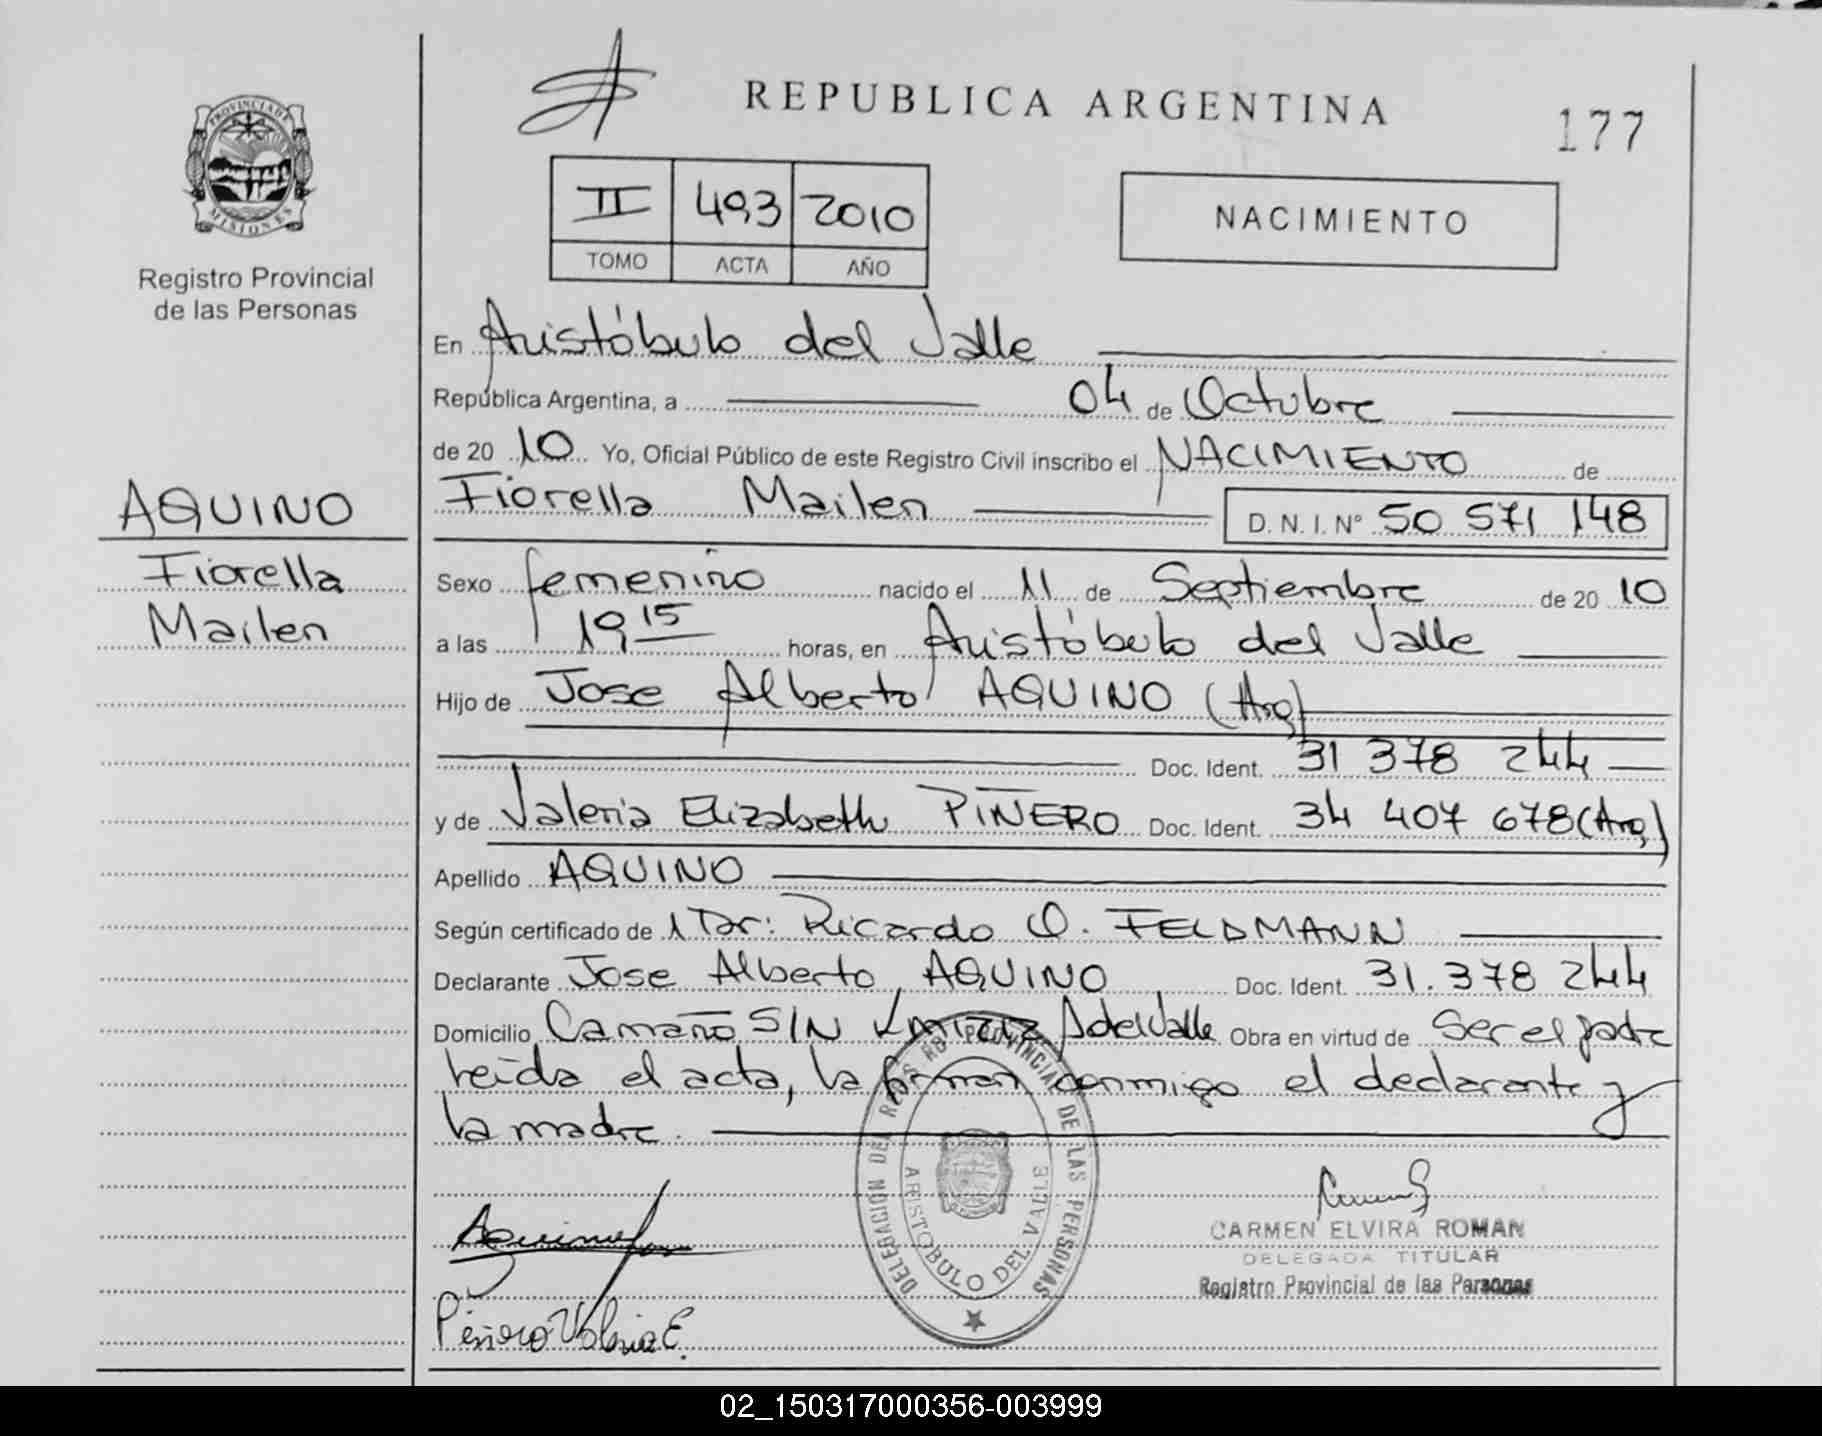 REPUBLICA ARGENTINA
177
PROVINCIA DE MISIONES
Registro Provincial
de las Personas
II 493 2010
TOMO ACTA AÑO
NACIMIENTO
AQUINO
Fiorella
Mailen
En Aristóbulo del Valle
República Argentina, a 04 de Octubre
de 20 10 Yo, Oficial Público de este Registro Civil inscribo el NACIMIENTO de
Fiorella Mailen D.N.I. Nº 50 571 148
Sexo femenino nacido el 11 de Septiembre de 20 10
a las 19 15 horas, en Aristóbulo del Valle
Hijo de Jose Alberto AQUINO (Arg)
Doc. Ident. 31 378 244
y de Valeria Elizabeth PIÑERO Doc. Ident. 34 407 678 (Arg)
Apellido AQUINO
Según certificado de 1 Dr: Ricardo O. FELDMANN
Declarante Jose Alberto AQUINO Doc. Ident. 31.378 244
Domicilio Camaño S/N A del Valle Obra en virtud de Ser el padre
leída el acta, la firman conmigo el declarante y
la madre.
DELEGACION DEL REGISTRO PROVINCIAL DE LAS PERSONAS
ARISTOBULO DEL VALLE
CARMEN ELVIRA ROMAN
DELEGADA TITULAR
Registro Provincial de las Personas
Piñero Valeria E.
02_150317000356-003999